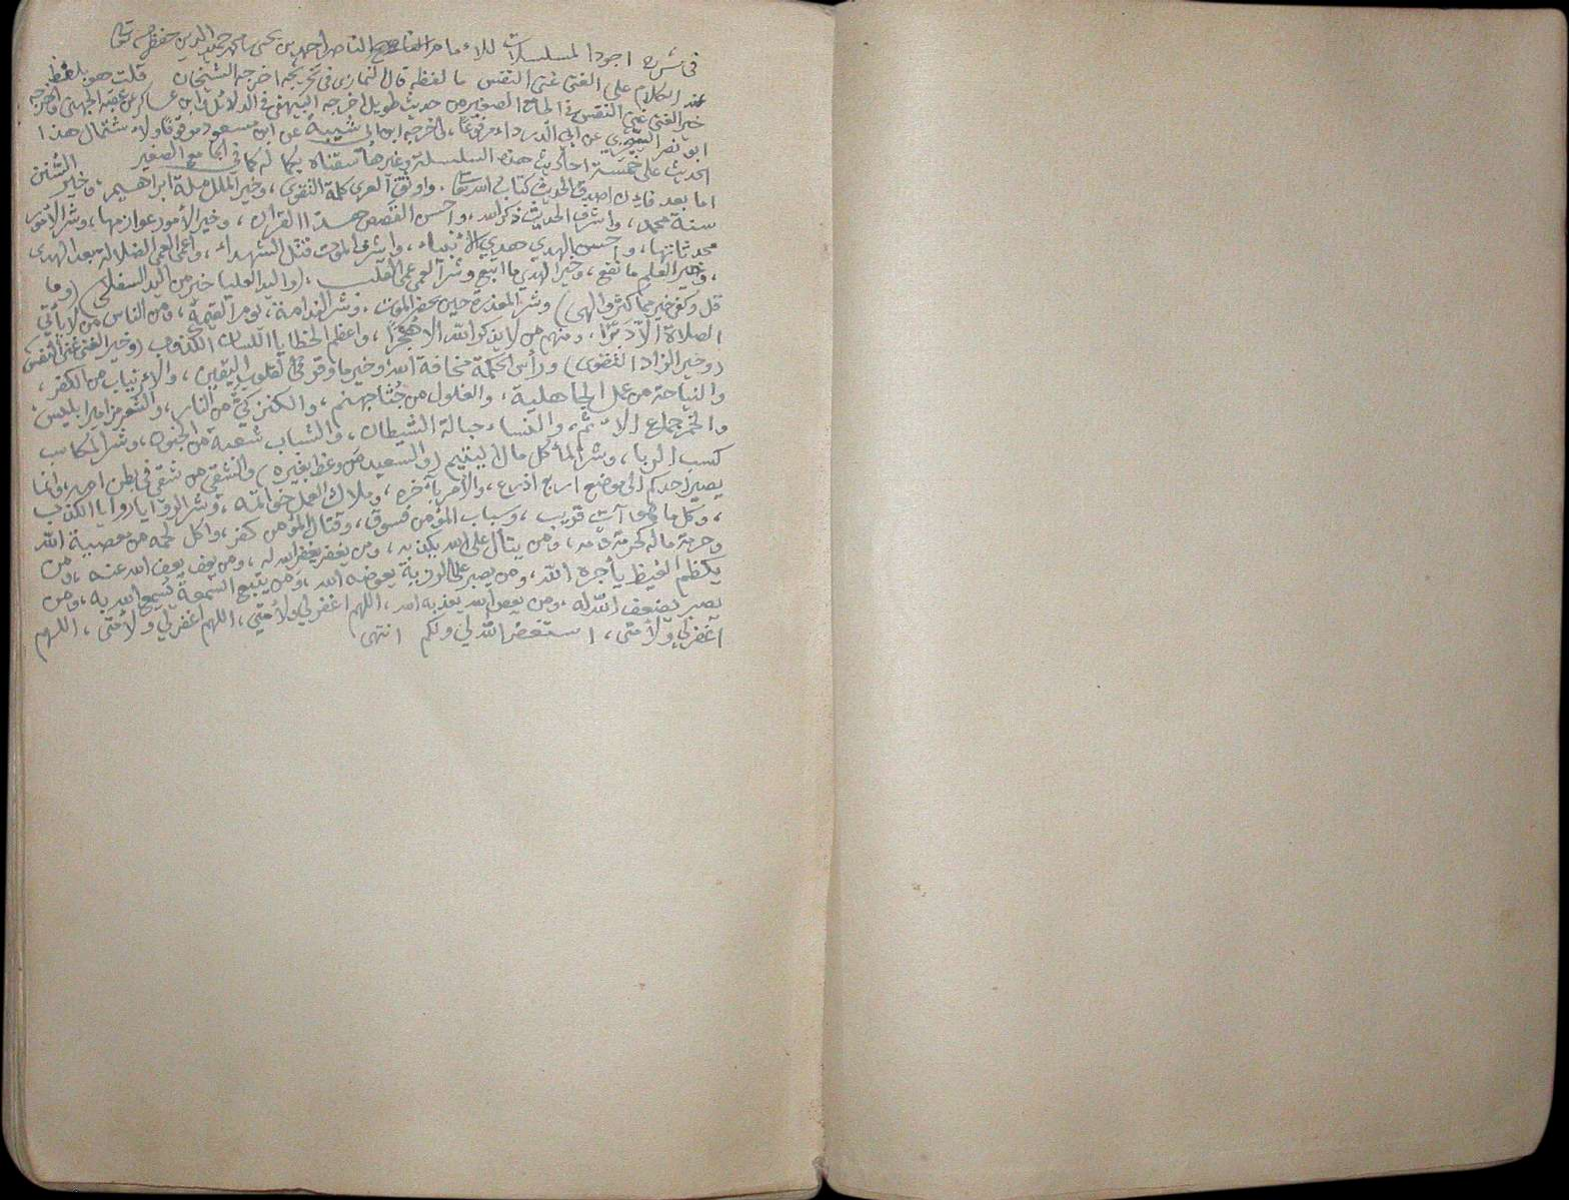 في شرح اجود المسلسلات للامام الناصر احمد بن يحيى محمد حميد الدين حفظه الله تعالى
عند الكلام على الغنى غنى النفس ما لفظه قال النمازي في تخريجه اخرجه الشيخان قلت هو بلفظ
خير الغنى غنى النفس في الجامع الصغير من حديث طويل اخرجه البيهقي في الدلائل وابن عساكر عن عقبة الجهني واخرجه
ابو نصر السجزي عن ابي الدرداء مرفوعًا، واخرجه ابن ابي شيبة عن ابن مسعود موقوفا ولاشتمال هذا
الحديث على خمسة احاديث هذه السلسلة وغيرها سقناه بكماله كما في الجامع الصغير
اما بعد فان اصدق الحديث كتاب الله تعالى، واوثق العرى كلمة التقوى، وخير الملل ملة ابراهيم، وخير السنن
سنة محمد، واشرف الحديث ذكر الله، واحسن القصص هذا القرآن، وخير الأمور عوازمها، وشر الأمور
محدثاتها، واحسن الهدي هدي الأنبياء، واشرف الموت قتل الشهداء، واعمى العمى الضلالة بعد الهدى
، وخير العلم ما نفع، وخير الهدي ما اتبع وشر العمى عمى القلب، (واليد العليا خير من اليد السفلى) (وما
قل وكفى خير مما كثر والهى) وشر المعذرة حين يحضر الموت، وشر الندامة، يوم القيمة، ومن الناس من لا يأتي
الصلاة الا دَبَرًا، ومنهم من لا يذكر الله الا هُجْرًا، واعظم الخطايا اللسان الكذوب (وخير الغنى غنى النفس)
(وخير الزاد التقوى) ورأس الحكمة مخافة الله، وخير ما وقر في القلوب اليقين، والارتياب من الكفر،
والنياحة من عمل الجاهلية، والغلول من جُثا جهنم، والكنز كيٌّ من النار، والشعر مزامير ابليس،
والخمر جماع الاثم، والنساء حبالة الشيطان، والشباب شعبة من الجنون، وشر المكاسب
كسب الربا، وشر المأكل مال اليتيم (والسعيد من وعظ بغيره) والشقي من شقي في بطن امه، وانما
يصير احدكم الى موضع اربع اذرع، والأمر بآخره، وملاك العمل خواتمه، وشر الروايا روايا الكذب
، وكل ما هو آت قريب، وسباب المؤمن فسوق، وقتال المؤمن كفر، واكل لحمه من معصية الله
وحرمة ماله كحرمة دمه، ومن يتأل على الله يكذبه، ومن يغفر يغفر الله له، ومن يعف يعف الله عنه، ومن
يكظم الغيظ يأجره الله، ومن يصبر على الرزية يعوضه الله، ومن يتبع السمعة يسمع الله به، ومن
يصبر يضعف الله له، ومن يعص الله يعذبه الله، اللهم اغفر لي ولأمتي، اللهم اغفر لي ولأمتي، اللهم
اغفر لي ولأمتي، استغفر الله لي ولكم انتهى